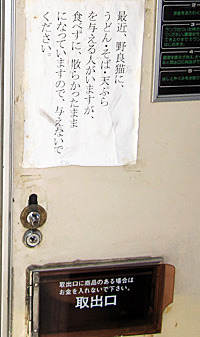 最近、野良猫に、
うどん・そば・天ぷら
を与える人がいますが、
食べずに、散らかったまま
になっていますので、与えないで
ください。
取出口に商品のある場合は
お金を入れないで下さい。
取出口